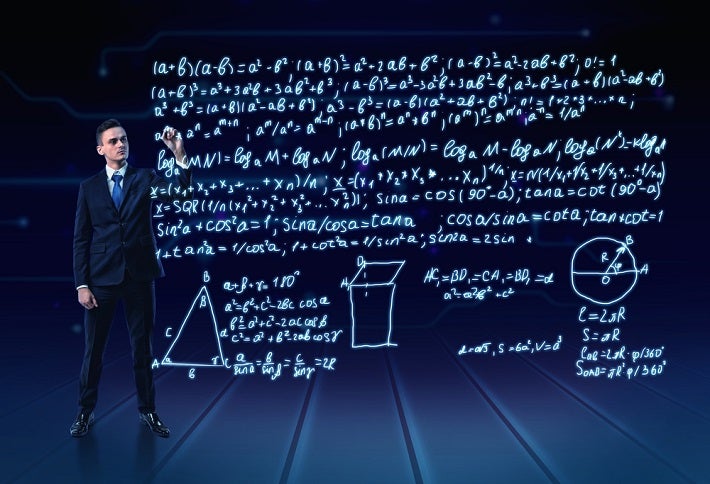 (a+b)(a-b)=a²-b²; (a+b)²=a²+2ab+b²; (a-b)²=a²-2ab+b²; 0!=1
(a+b)³=a³+3a²b+3ab²+b³; (a-b)³=a³-3a²b+3ab²-b³; a³+b³=(a+b)(a²-ab+b²)
a³+b³=(a+b)(a²-ab+b²); a³-b³=(a-b)(a²+ab+b²); n!=1*2*3*...*n;
aⁿ=aᵐ⁺ⁿ; aᵐ/aⁿ=aᵐ⁻ⁿ; (a*b)ⁿ=aⁿ*bⁿ; a⁻ⁿ=1/aⁿ
logₐ(MN)=logₐM+logₐN; logₐ(M/N)=logₐM-logₐN; logₐ(Nᵏ)=klogₐN
x=(x₁+x₂+x₃+...+xₙ)/n; x=(x₁*x₂*x₃*...xₙ)¹/ⁿ; x=n/(1/x₁+1/x₂+1/x₃+...+1/xₙ)
x=SQR(1/n(x₁²+x₂²+x₃²+...xₙ²)); sina=cos(90°-a); tana=cot(90°-a)
sin²a+cos²a=1; sina/cosa=tana ; cosa/sina=cota; tan*cot=1
1+tan²a=1/cos²a; 1+cot²a=1/sin²a; sin2a=2sin
B
β
A
a
C
c
a
b
γ
α+β+γ=180°
a²=b²+c²-2bc cosα
b²=a²+c²-2ac cosβ
c²=a²+b²-2ab cosγ
a/sinα=b/sinβ=c/sinγ=2R
D₁
A₁
AC₁=BD₁=CA₁=BD₁=d
d=a√3, S=6a², V=a³
B
R
φ
O
A
l=2πR
S=πR²
l_AB=2πR·φ/360°
S_OAB=πR²·φ/360°